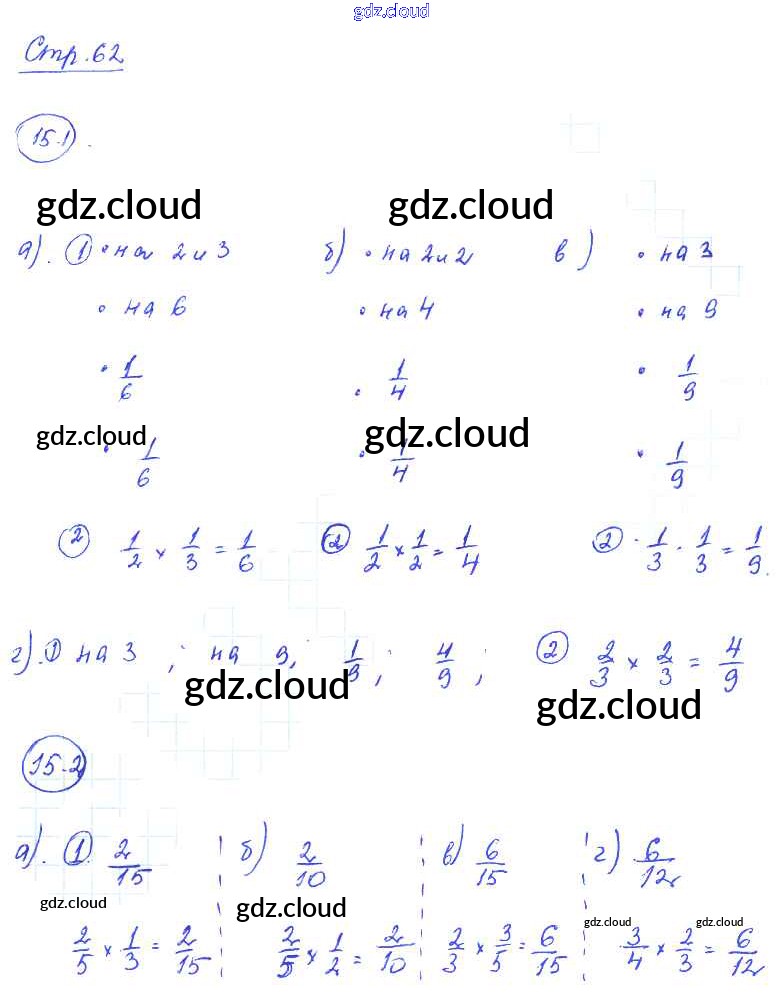 gdz.cloud
Стр. 62
15.1.
gdz.cloud gdz.cloud
а). ① • на 2 и 3 б) • на 2 и 2 в) • на 3
• на 6 • на 4 • на 9
• 1/6 • 1/4 • 1/9
gdz.cloud gdz.cloud
• 1/6 • 1/4 • 1/9
② 1/2 × 1/3 = 1/6 ② 1/2 × 1/2 = 1/4 ② · 1/3 · 1/3 = 1/9.
г). ① на 3 ; на 9, 1/9 ; 4/9 ; ② 2/3 × 2/3 = 4/9
gdz.cloud gdz.cloud
15.2
а). ① 2/15 б) 2/10 в) 6/15 г) 6/12
gdz.cloud gdz.cloud gdz.cloud gdz.cloud
2/5 × 1/3 = 2/15 2/5 × 1/2 = 2/10 2/3 × 3/5 = 6/15 3/4 × 2/3 = 6/12